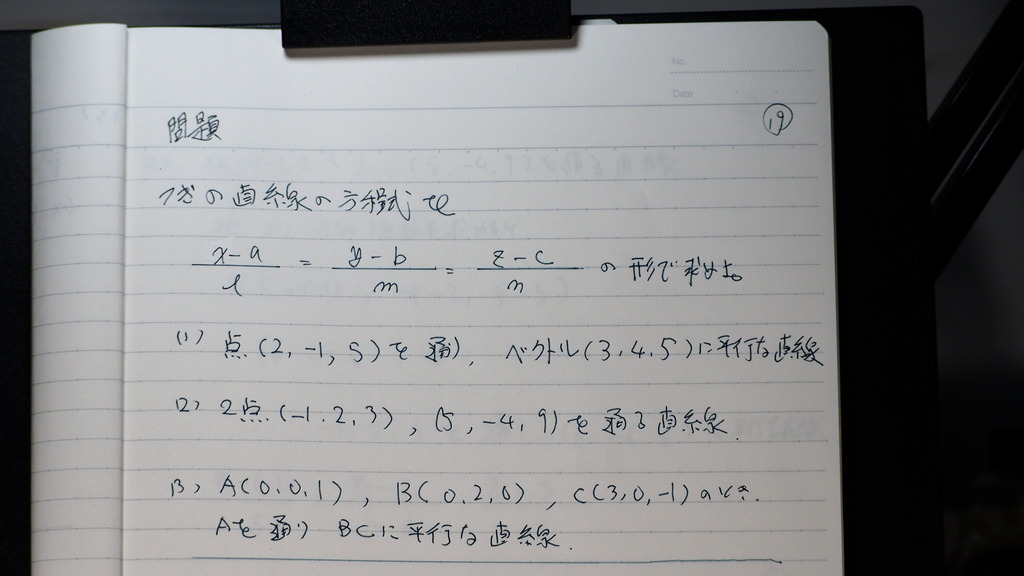 No.
Date
⑲
問題
つぎの直線の方程式を
x-a/l = y-b/m = z-c/n の形で求めよ。
(1) 点(2,-1,5)を通り, ベクトル(3,4,5)に平行な直線
(2) 2点(-1,2,3), (5,-4,9)を通る直線.
(3) A(0,0,1), B(0,2,0), C(3,0,-1)のとき.
Aを通り BCに平行な直線.